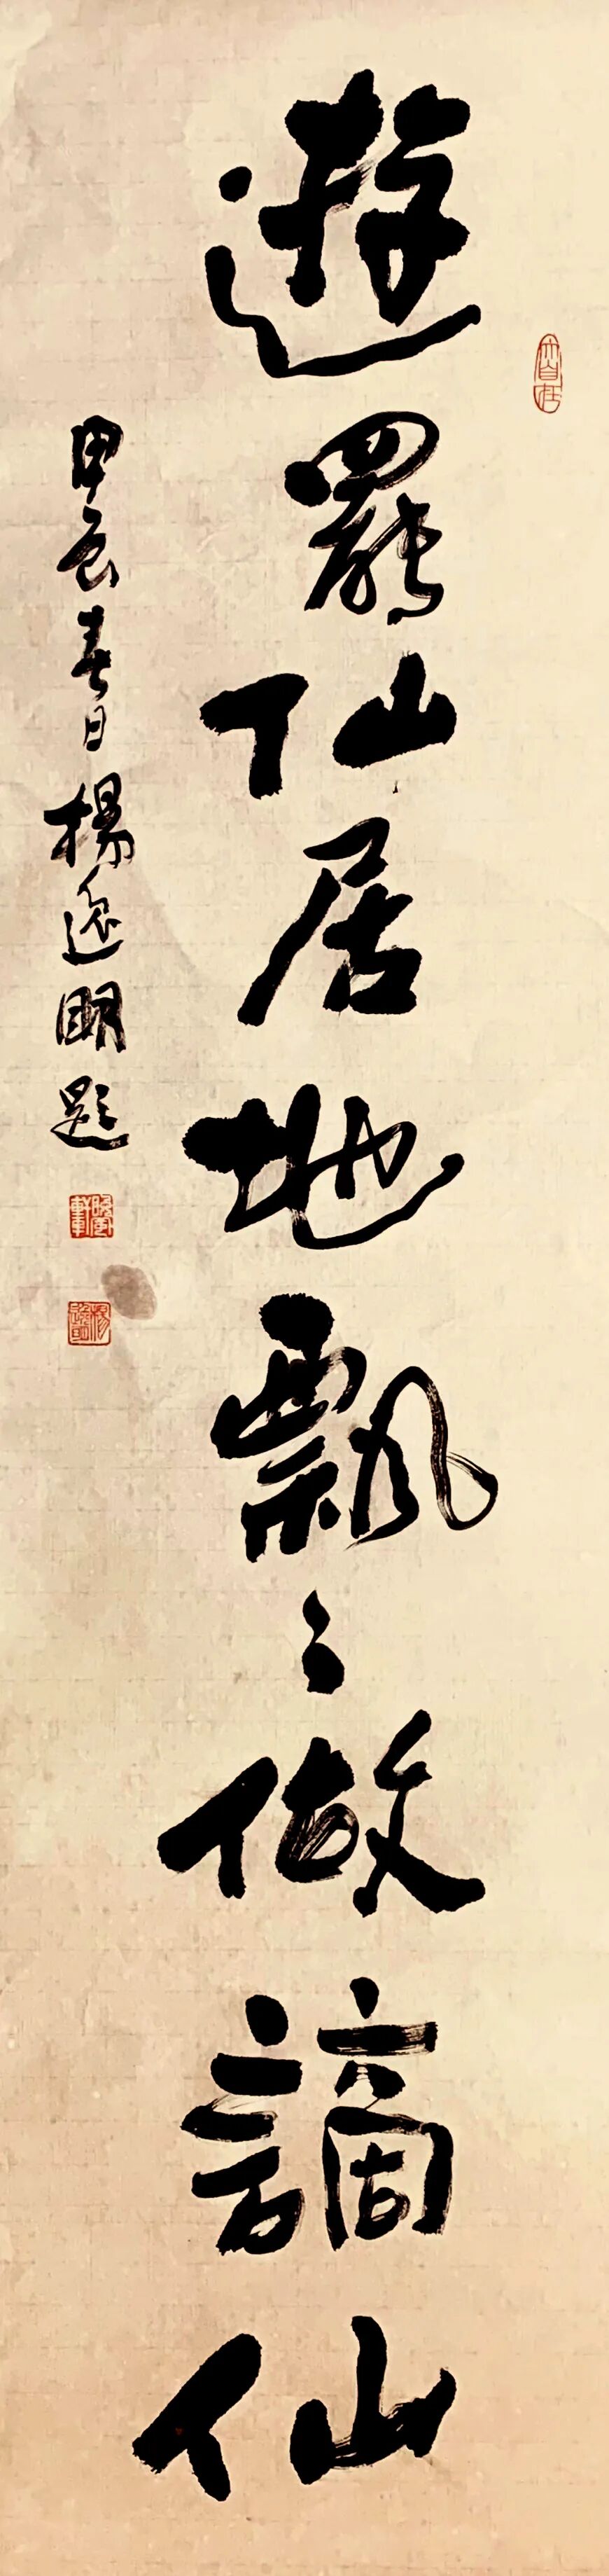 遊罷仙居地飄〻做謫仙
甲辰春日楊逸明題